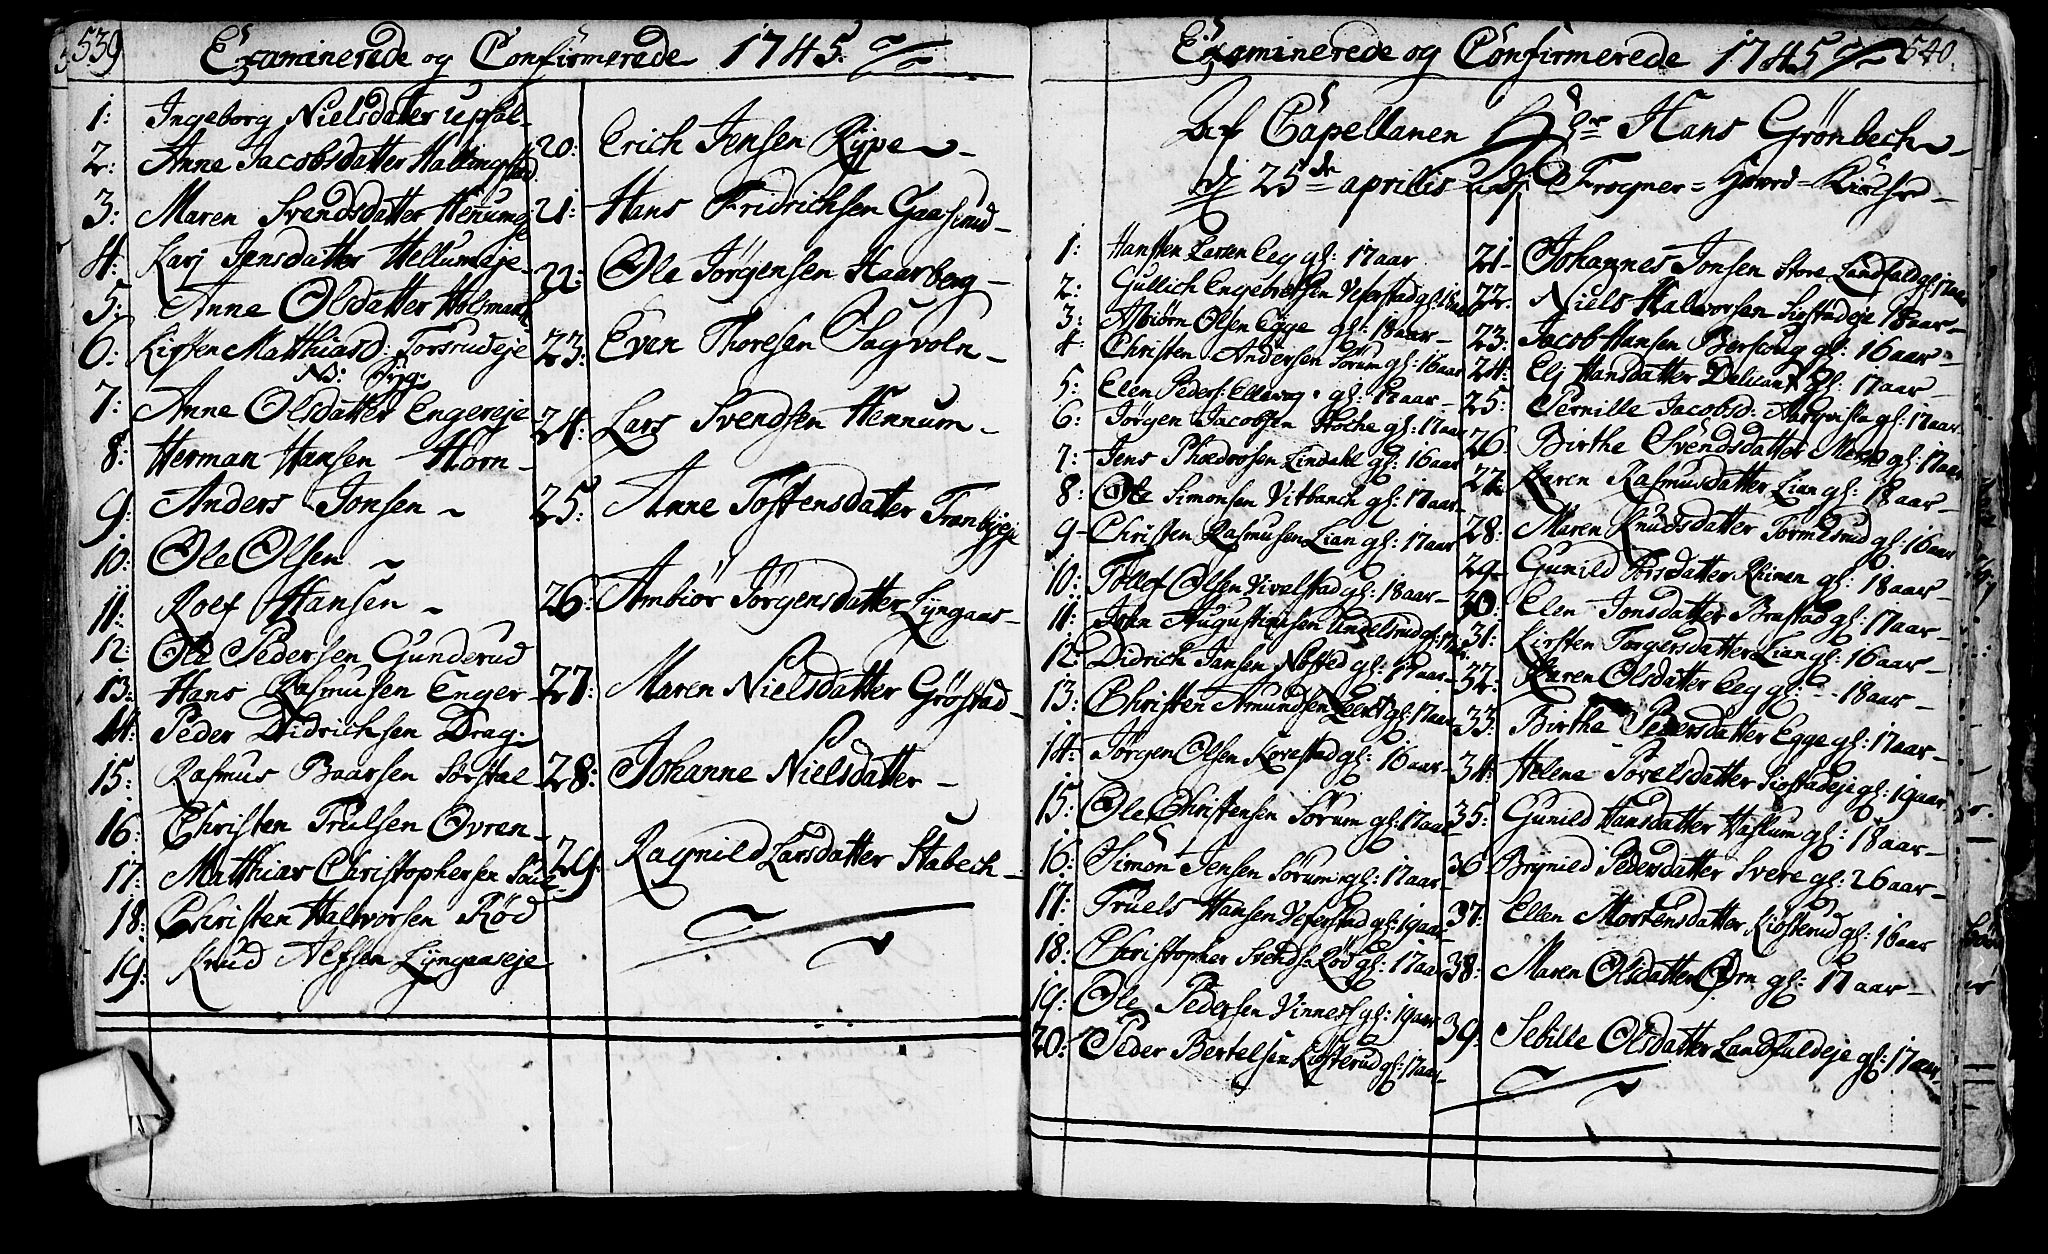 539
Examinerede og Confirmerede 1745.
1: Ingeborg Nielsdatter Upsal-
2: Anne Jacobsdatter Hallingstad
3: Maren Svendsdatter Henumeje
4: Karj Jensdatter Hellumeje-
5: Anne Olsdatter Holsmark
6: Kirsten Matthiasd: Torsrudeje
NB: Syg.
7: Anne Olsdatter Engereje
8: Herman Hansen Horn-
9: Anders Jonsen ~
10: Ole Olsen ~
11: Roef Hansen ~
12: Ole Pedersen Gunderud
13: Hans Rasmusen Enger-
14: Peder Didrichsen Drag.
15: Rasmus Baarsen Sørstal
16: Christen Trulsen Ovren-
17: Matthias Christophersen
18: Christen Halworsen Rød
19: Knud Alfsen Lyngaaseje
20: Erich Jensen Rype-
21: Hans Fridrichsen Gaasrud-
22: Ole Jørgensen Haarberg-
23: Even Thoresen Sagvoln-
24: Lars Svendsen Hennum-
25: Anne Tostensdatter Tranbyeje
26: Ambiør Jørgensdatter Lyngaas-
27: Maren Nielsdatter Grøstad-
28: Johanne Nielsdatter-
29: Ragnild Larsdatter Stabech-
540.
Examinerede og Confirmerede 1745
Af Capellanen Hans Grønbech-
25de aprilis udj Frogner= Hoved= Kirche-
1: Hansten Larsen Eeg gl: 17 aar
2: Gullich Engebretsen Veserstad gl:
3: Asbiørn Olsen Egge gl: 18 aar-
4 Christen Andersen Sørum gl: 16 aar
5: Elen Peders: Ellevog. gl: 17 aar-
6: Jørgen Jacobsen Hoche gl: 17 aar
7: Jens Phoedrosen Lindahl gl: 16 aar
8: Ole Simonsen Vitbanch gl: 17 aar-
9- Christen Rasmusen Lian gl: 17 aar
10: Tollef Olsen Vivalstad gl: 18 aar-
11: John Augustinusen Undelsrud gl: 17 aar
12: Didrich Jansen Nøsted gl: 17 aar-
13: Christen Amundsen Leerst gl: 17 aar
14: Jørgen Olsen Korestad gl: 16 aar-
15: Ole Christensen Sørum gl: 17 aar
16: Simon Jensen Sørum gl: 17 aar-
17: Truels Hansen Veserstad gl: 19 aar-
18: Christopher Svends: Rød gl: 17 aar
19: Ole Pedersen Vinness gl: 19 aar
20: Peder Bertelsen Kiosterud gl: 17 aar-
21- Johannes Jonsen Store Landfald gl: 17 aar
22: Niels Halworsen Siøstadeje 18 aar-
23: Jacob Hansen Berskoug gl: 16 aar-
24: Elj Hansdatter Delicant gl: 17 aar-
25: Pernille Jacobsd: gl: 17 aar-
26: Birthe Svendsdatter Moen gl: 17 aar
27: Karen Rasmusdatter Lian gl: 18 aar-
28: Maren Knudsdatter Tormesrud gl: 16 aar
29- Gunild Torsdatter Rhinen gl: 18 aar-
30: Elen Jonsdatter Brastad gl: 17 aar-
31: Kirsten Torgersdatter Lian gl: 16 aar-
32: Karen Olsdatter Eeg gl: - 18 aar-
33: Birthe Pedersdatter Egge gl: 17 aar-
34: Helene Povelsdatter Siøstadeje gl: 19 aar
35: Gunild Hansdatter Haslum gl: 18 aar-
36 Brynild Pedersdatter Svere gl: 26 aar-
37: Ellen Mortensdatter Kiosterud gl: 16 aar
38: Maren Olsdatter Orn gl: 17 aar-
39: Sebille Olsdatter Landfaldeje gl: 17 aar-